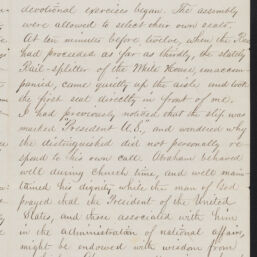 devotional exercises began. The assembly
were allowed to select their own seats.
At ten minutes before twelve, when the
had proceeded as far as thirdly, the stately
Rail-splitter of the White House, unaccom-
panied, came quietly up the aisle and took
the first seat directly in front of me.
I had previously noticed that the slip was
marked "President U.S.," and wondered why
the distinguished did not personally re-
spond to his own call. Abraham behaved
well during church time, and well main-
tained his dignity while the man of God
prayed that the President of the United
States, and those associated with him
in the administration of national affairs,
might be endowed with wisdom from